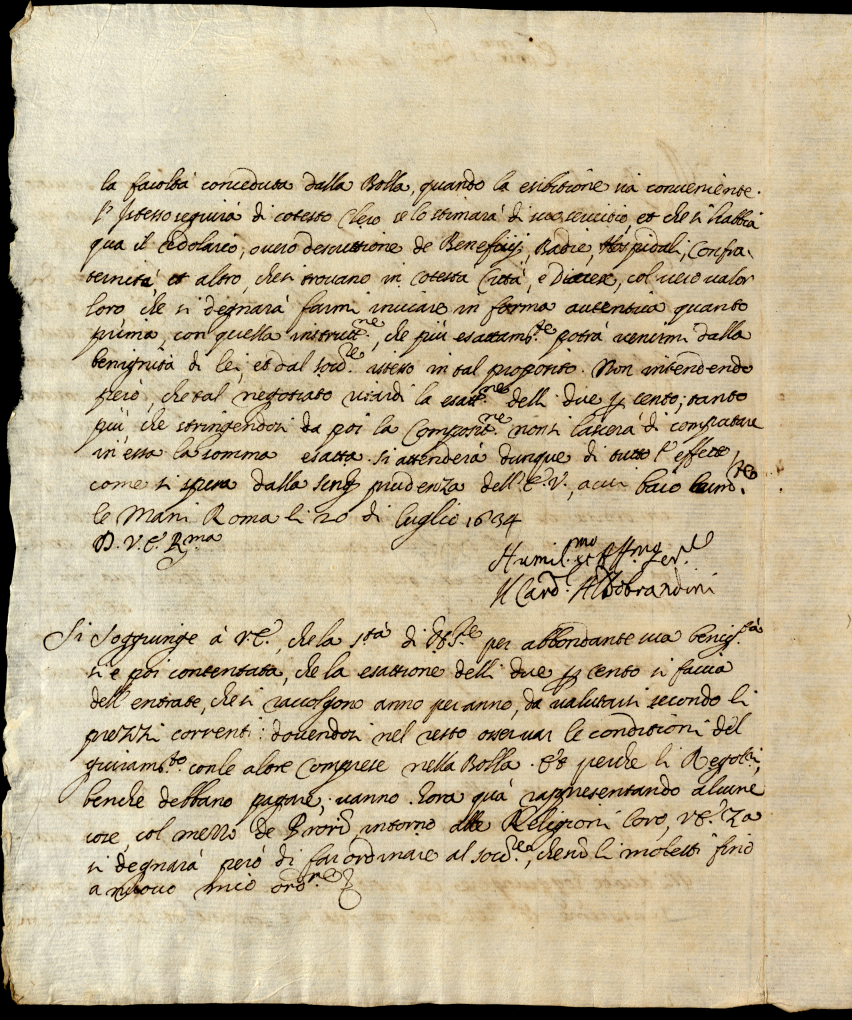 la facoltà conceduta dalla Bolla, quando la esibitione sia conveniente.
l'istesso seguirà di cotesto Clero se lo stimarà di suo servitio et che si habbia
qua il Cedolario, overo descrittione de Beneficij, Badie, Hospidali, Confra-
ternità et altro, che si trovano in cotestà Città, e Diocese, col vero valor
loro che si degnarà farmi inviare in forma autentica quanto
prima, con quella instrutt.ne, che più esattam.te potrà venirmi dalla
benignità di lei, et dal socd.re istesso in tal proposito. Non intendendo
però, che tal negotiato ritardi la esatt.ne delli due per cento; tanto
più che stringendosi da poi la Composit.ne non si lascerà di computare
in essa la somma esatta. Si attenderà dunque di tutto l'effetto,
come si spera dalla prudenza dell'E.V., a cui bacio hum.te
le Mani Roma li 20 di luglio 1634
D. V. E. R.ma
Humil.mo et Aff.mo Ser.re
Il Card.l Aldobrandini
Si soggiunge à V.E., che la S.tà di N.S.re per abbondante sua benig.tà
si è poi contentata, che la esattione delli due per cento si faccia
dell entrate, che si raccolgono anno per anno, da valutarsi secondo li
prezzi correnti: dovendosi nel resto osservar le conditioni del
giuram.to con le altre Comprese nella Bolla. Et perche li Regol.ri,
benche debbano pagare, vanno hora quà rappresentando alcune
cose, col mezzo de Procri, intorno alle Religioni loro, V.E. R.ma
si degnarà però di far ordinare al socd.re, che non li molesti fino
a nuovo mio ord.ne